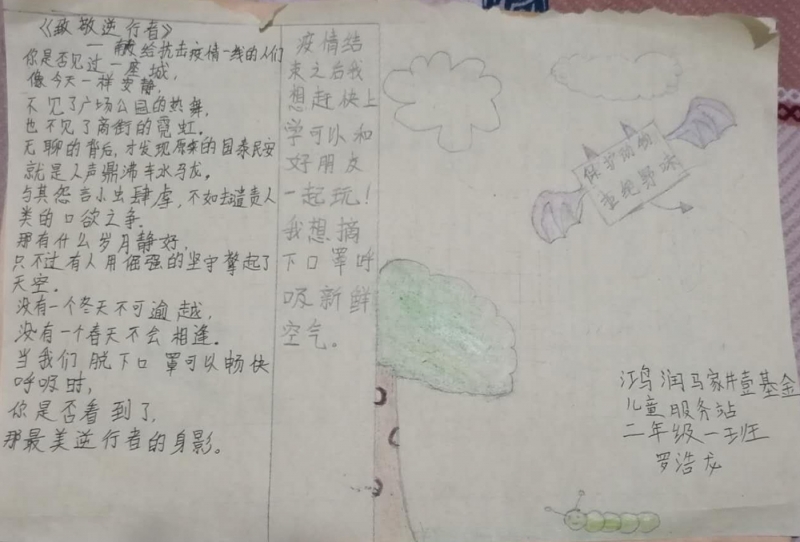 《致敬逆行者》
一献给抗击疫情一线的人们
你是否见过一座城，
像今天一样安静，
不见了广场公园的热舞，
也不见了商街的霓虹。
无聊的背后，才发现原来的国泰民安
就是人声鼎沸车水马龙。
与其怨言小虫肆虐，不如去谴责人
类的口欲之争。
那有什么岁月静好，
只不过有人用倔强的坚守擎起了
天空。
没有一个冬天不可逾越，
没有一个春天不会相逢。
当我们脱下口罩可以畅快
呼吸时，
你是否看到了，
那最美逆行者的身影。
疫情结
束之后我
想赶快上
学可以和
好朋友
一起玩！
我想摘
下口罩呼
吸新鲜
空气。
保护动物
拒绝野味
鸿润马家井壹基金
儿童服务站
二年级一班
罗浩龙